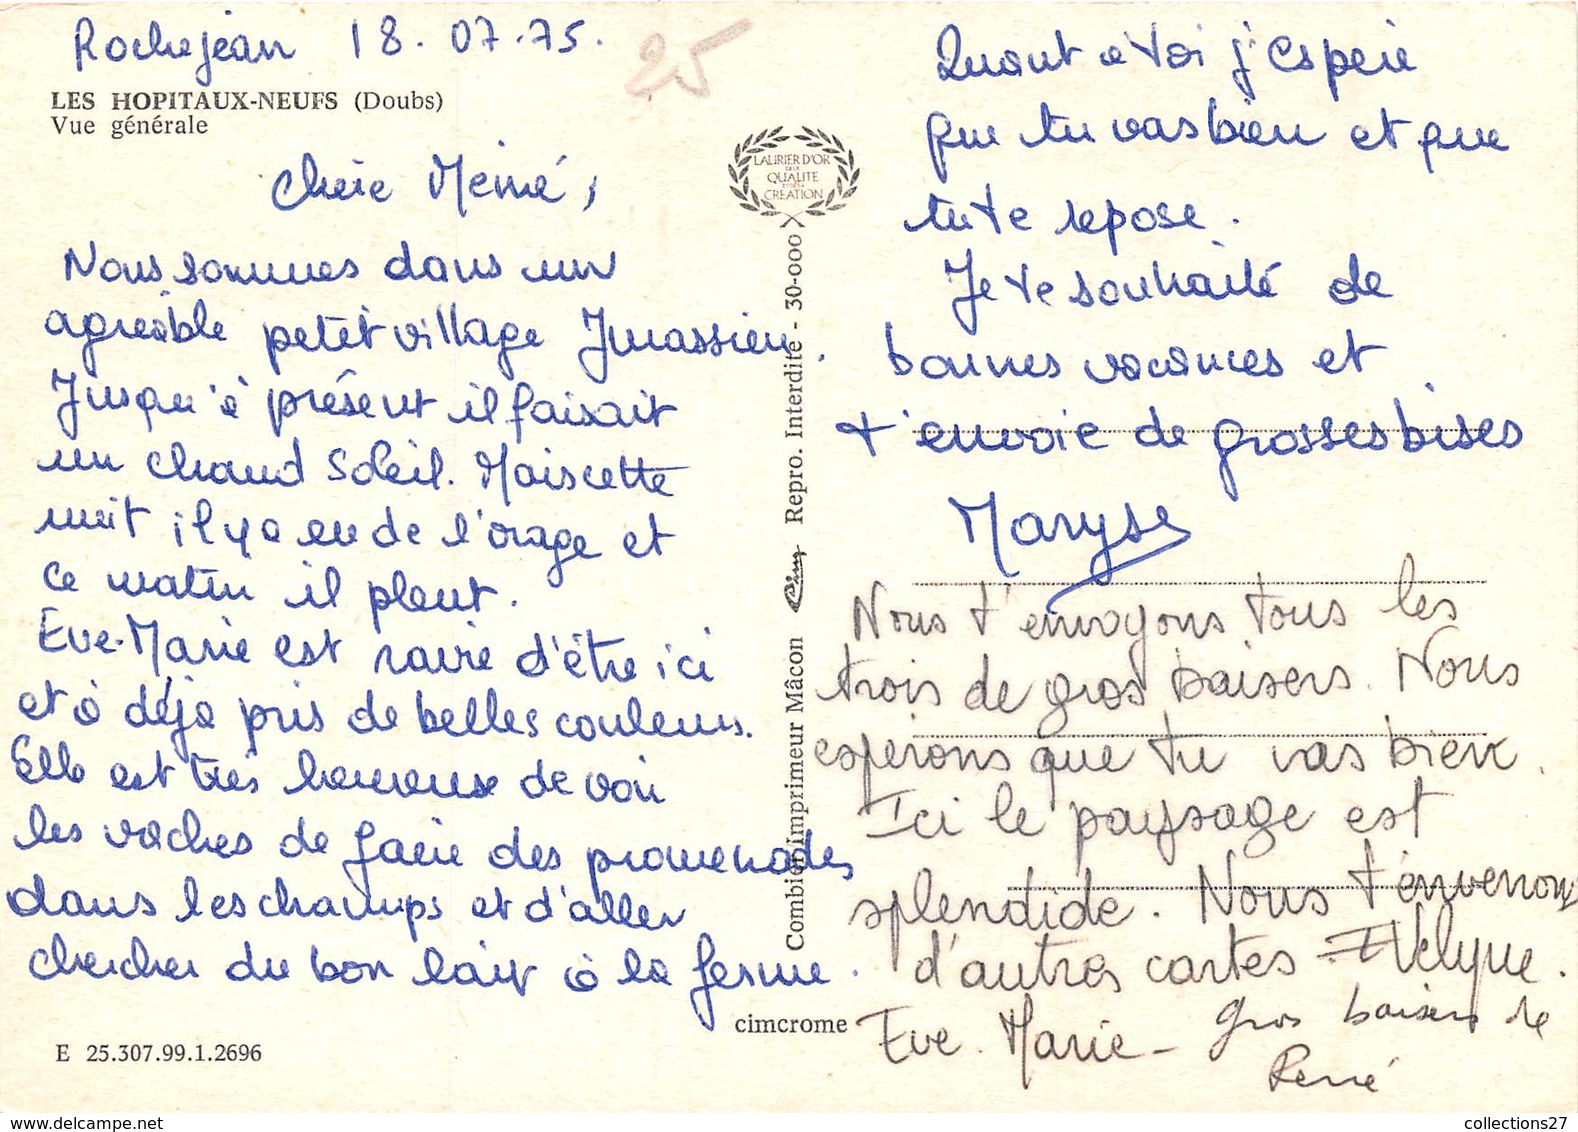 Rochejean 18.07.75.
25
LES HOPITAUX-NEUFS (Doubs)
Vue générale
Cheie Mémé,
Nous sommes dans un
agréable petit village Jurassien.
Jusqu'à présent il faisait
un chaud soleil. Mais cette
nuit il y a eu de l'orage et
ce matin il pleut.
Eve-Marie est ravie d'être ici
et à déjà pris de belles couleurs.
Elle est très heureuse de voir
les vaches de faire des promenades
dans les champs et d'aller
chercher du bon lait à la ferme.
E 25.307.99.1.2696
cimcrome
LAURIER D'OR
DE LA
QUALITE
ET DE LA
CREATION
Combier Imprimeur Mâcon Cim Repro. Interdite - 30-000
Quant à toi j'espère
que tu vas bien et que
tu te repose.
Je te souhaité de
bonnes vacances et
t'envoie de grosses bises
Maryse
Nous t'envoyons tous les
trois de gros baisers. Nous
espérons que tu vas bien.
Ici le paysage est
splendide. Nous t'enverrons
d'autres cartes - Evelyne.
Eve. Marie - gros baisers de
René
collections27